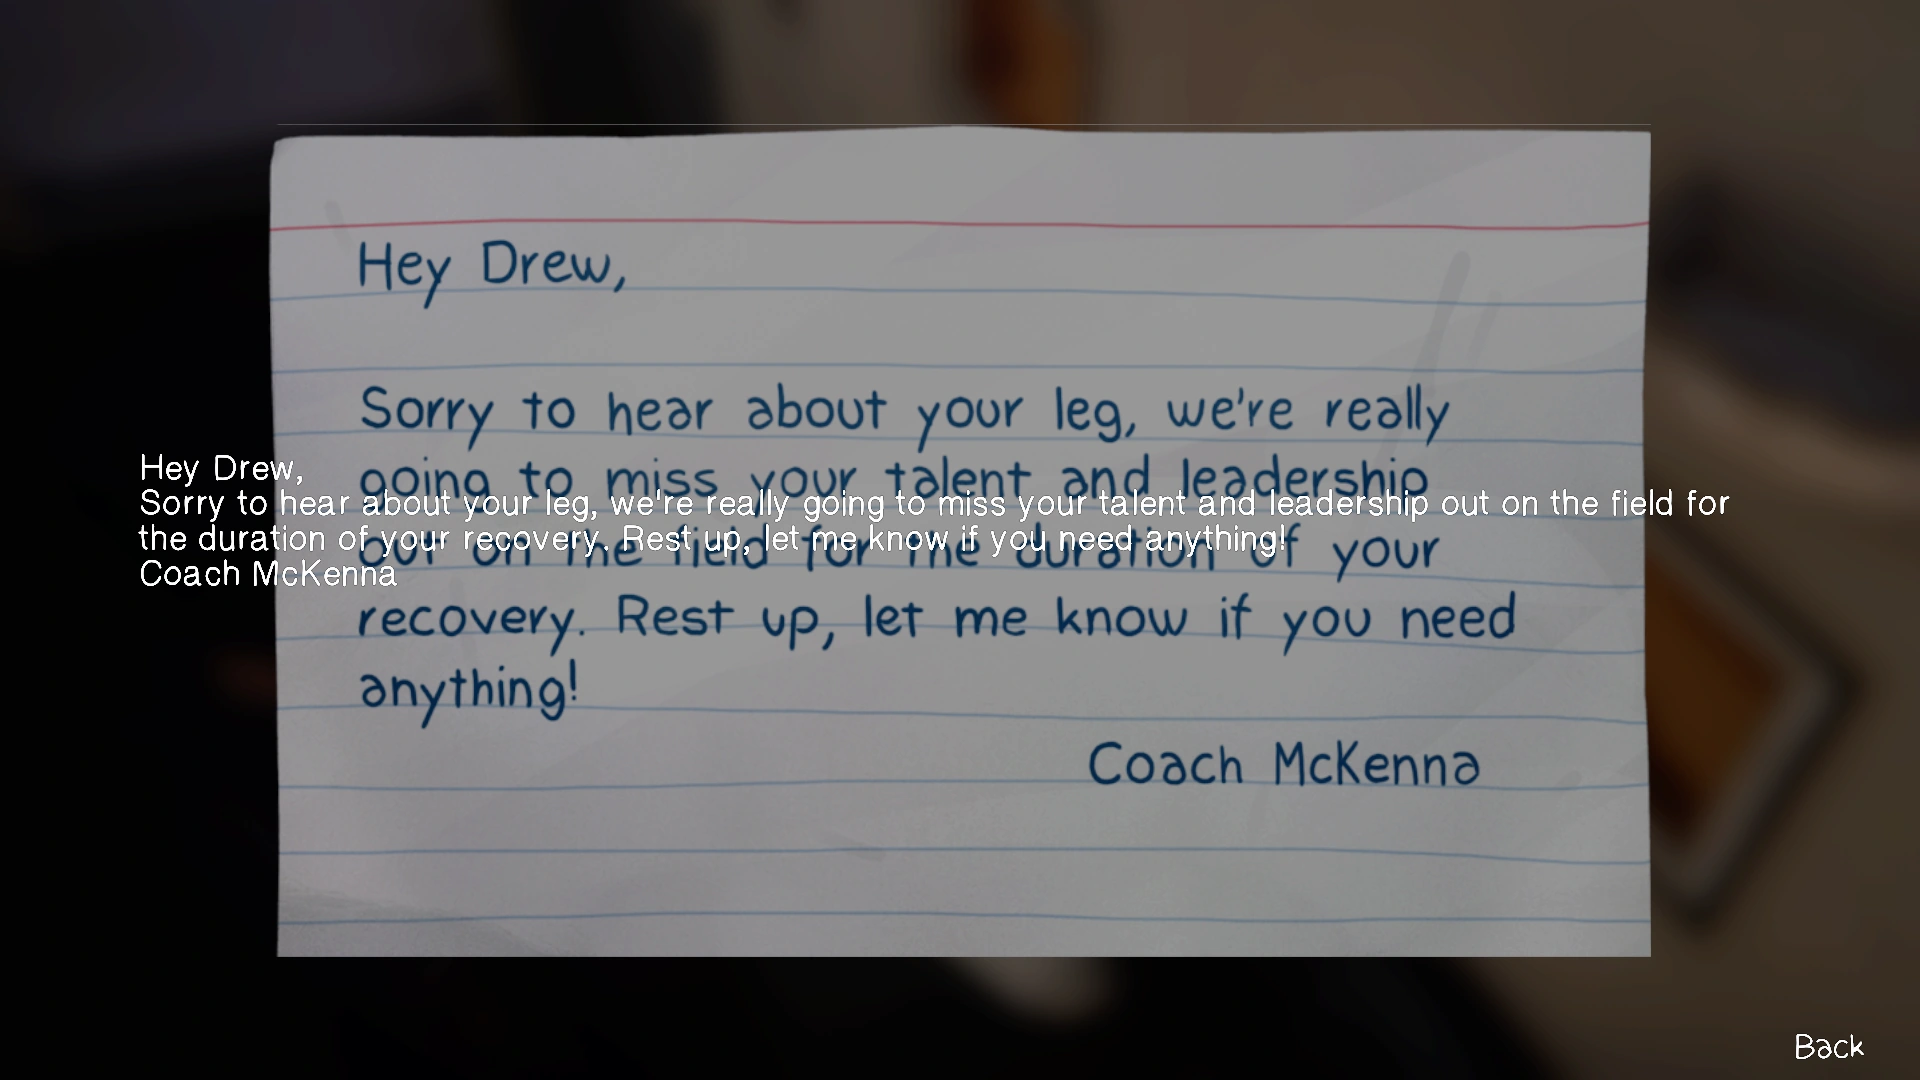 Hey Drew,
Sorry to hear about your leg, we're really
going to miss your talent and leadership
out on the field for the duration of your
recovery. Rest up, let me know if you need
anything!
Coach McKenna
Hey Drew,
Sorry to hear about your leg, we're really going to miss your talent and leadership out on the field for
the duration of your recovery. Rest up, let me know if you need anything!
Coach McKenna
Back